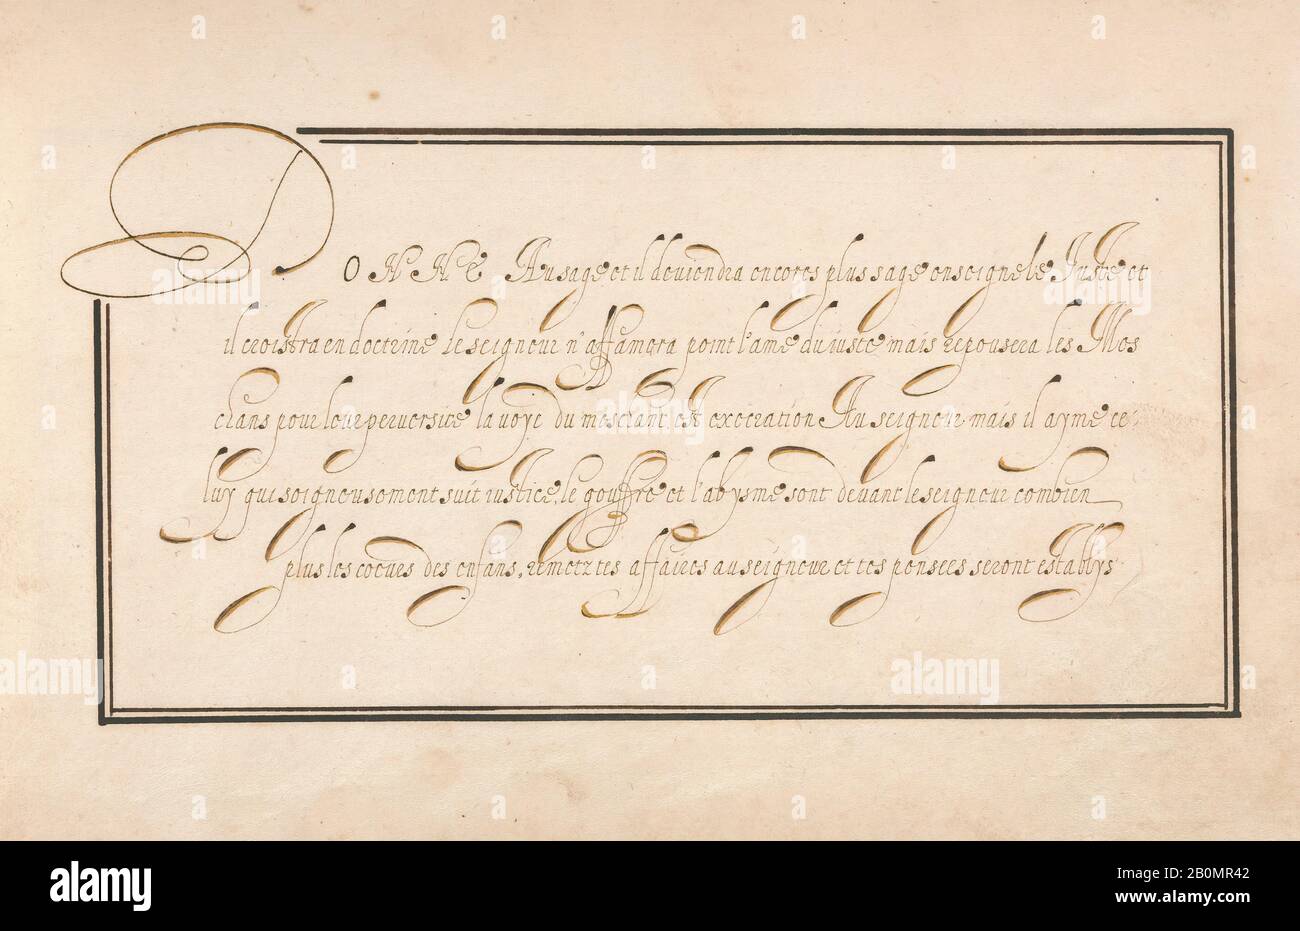 DONNE Au sage et il deviendra encores plus sage enseigne le Juste et
il croistra en doctrine le seigneur n'affamera point l'ame du iuste mais repousera les Mes
chans pour leur perversite la voye du meschant est execration Au seigneur mais il ayme ce-
luy qui soigneusement suit iustice, le gouffre et l'abysme sont devant le seigneur combien
plus les coeurs des enfans, remetz tes affaires au seigneur et tes pensees seront establys
alamy
alamy
alamy
alamy
alamy
alamy
Image ID: 2B0MR42
www.alamy.com